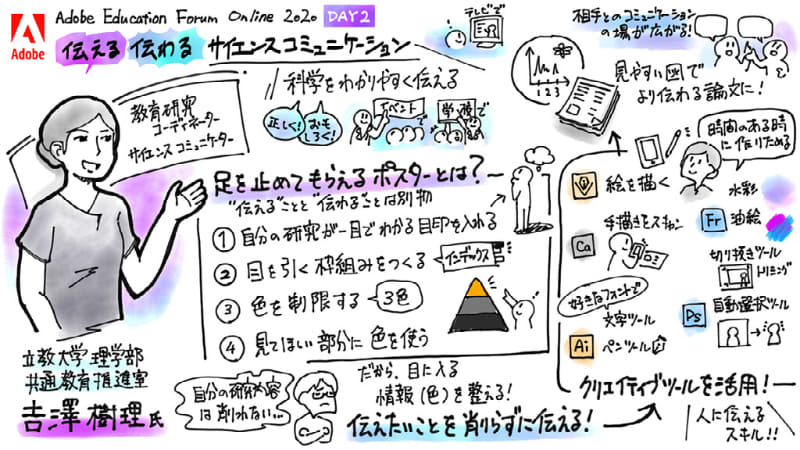 Adobe
Adobe Education Forum Online 2020 DAY2
伝える 伝わる サイエンスコミュニケーション
教育研究
コーディネーター
サイエンスコミュニケーター
立教大学 理学部
共通教育推進室
吉澤 樹理 氏
科学をわかりやすく伝える
正しく!
おもしろく!
イベントで
学校で
テレビで
足を止めてもらえるポスターとは?
"伝える"ことと"伝わる"ことは別物
① 自分の研究が一目でわかる目印を入れる
② 目を引く枠組みをつくる
インデックス
③ 色を制限する
3色
④ 見てほしい部分に色を使う
だから、目に入る
情報(色)を整える!
自分の研究内容
は削れない…
伝えたいことを削らずに伝える!
相手とのコミュニケーション
の場が広がる!
1 2 3
見やすい図で
より伝わる論文に!
時間のある時
に作りためる
絵を描く
水彩
Fr 油絵
Ca
手描きをスキャン
切り抜きツール
トリミング
好きなフォントで
文字ツール
Ps 自動選択ツール
Ai ペンツール
クリエイティブツールを活用!
人に伝える
スキル!!